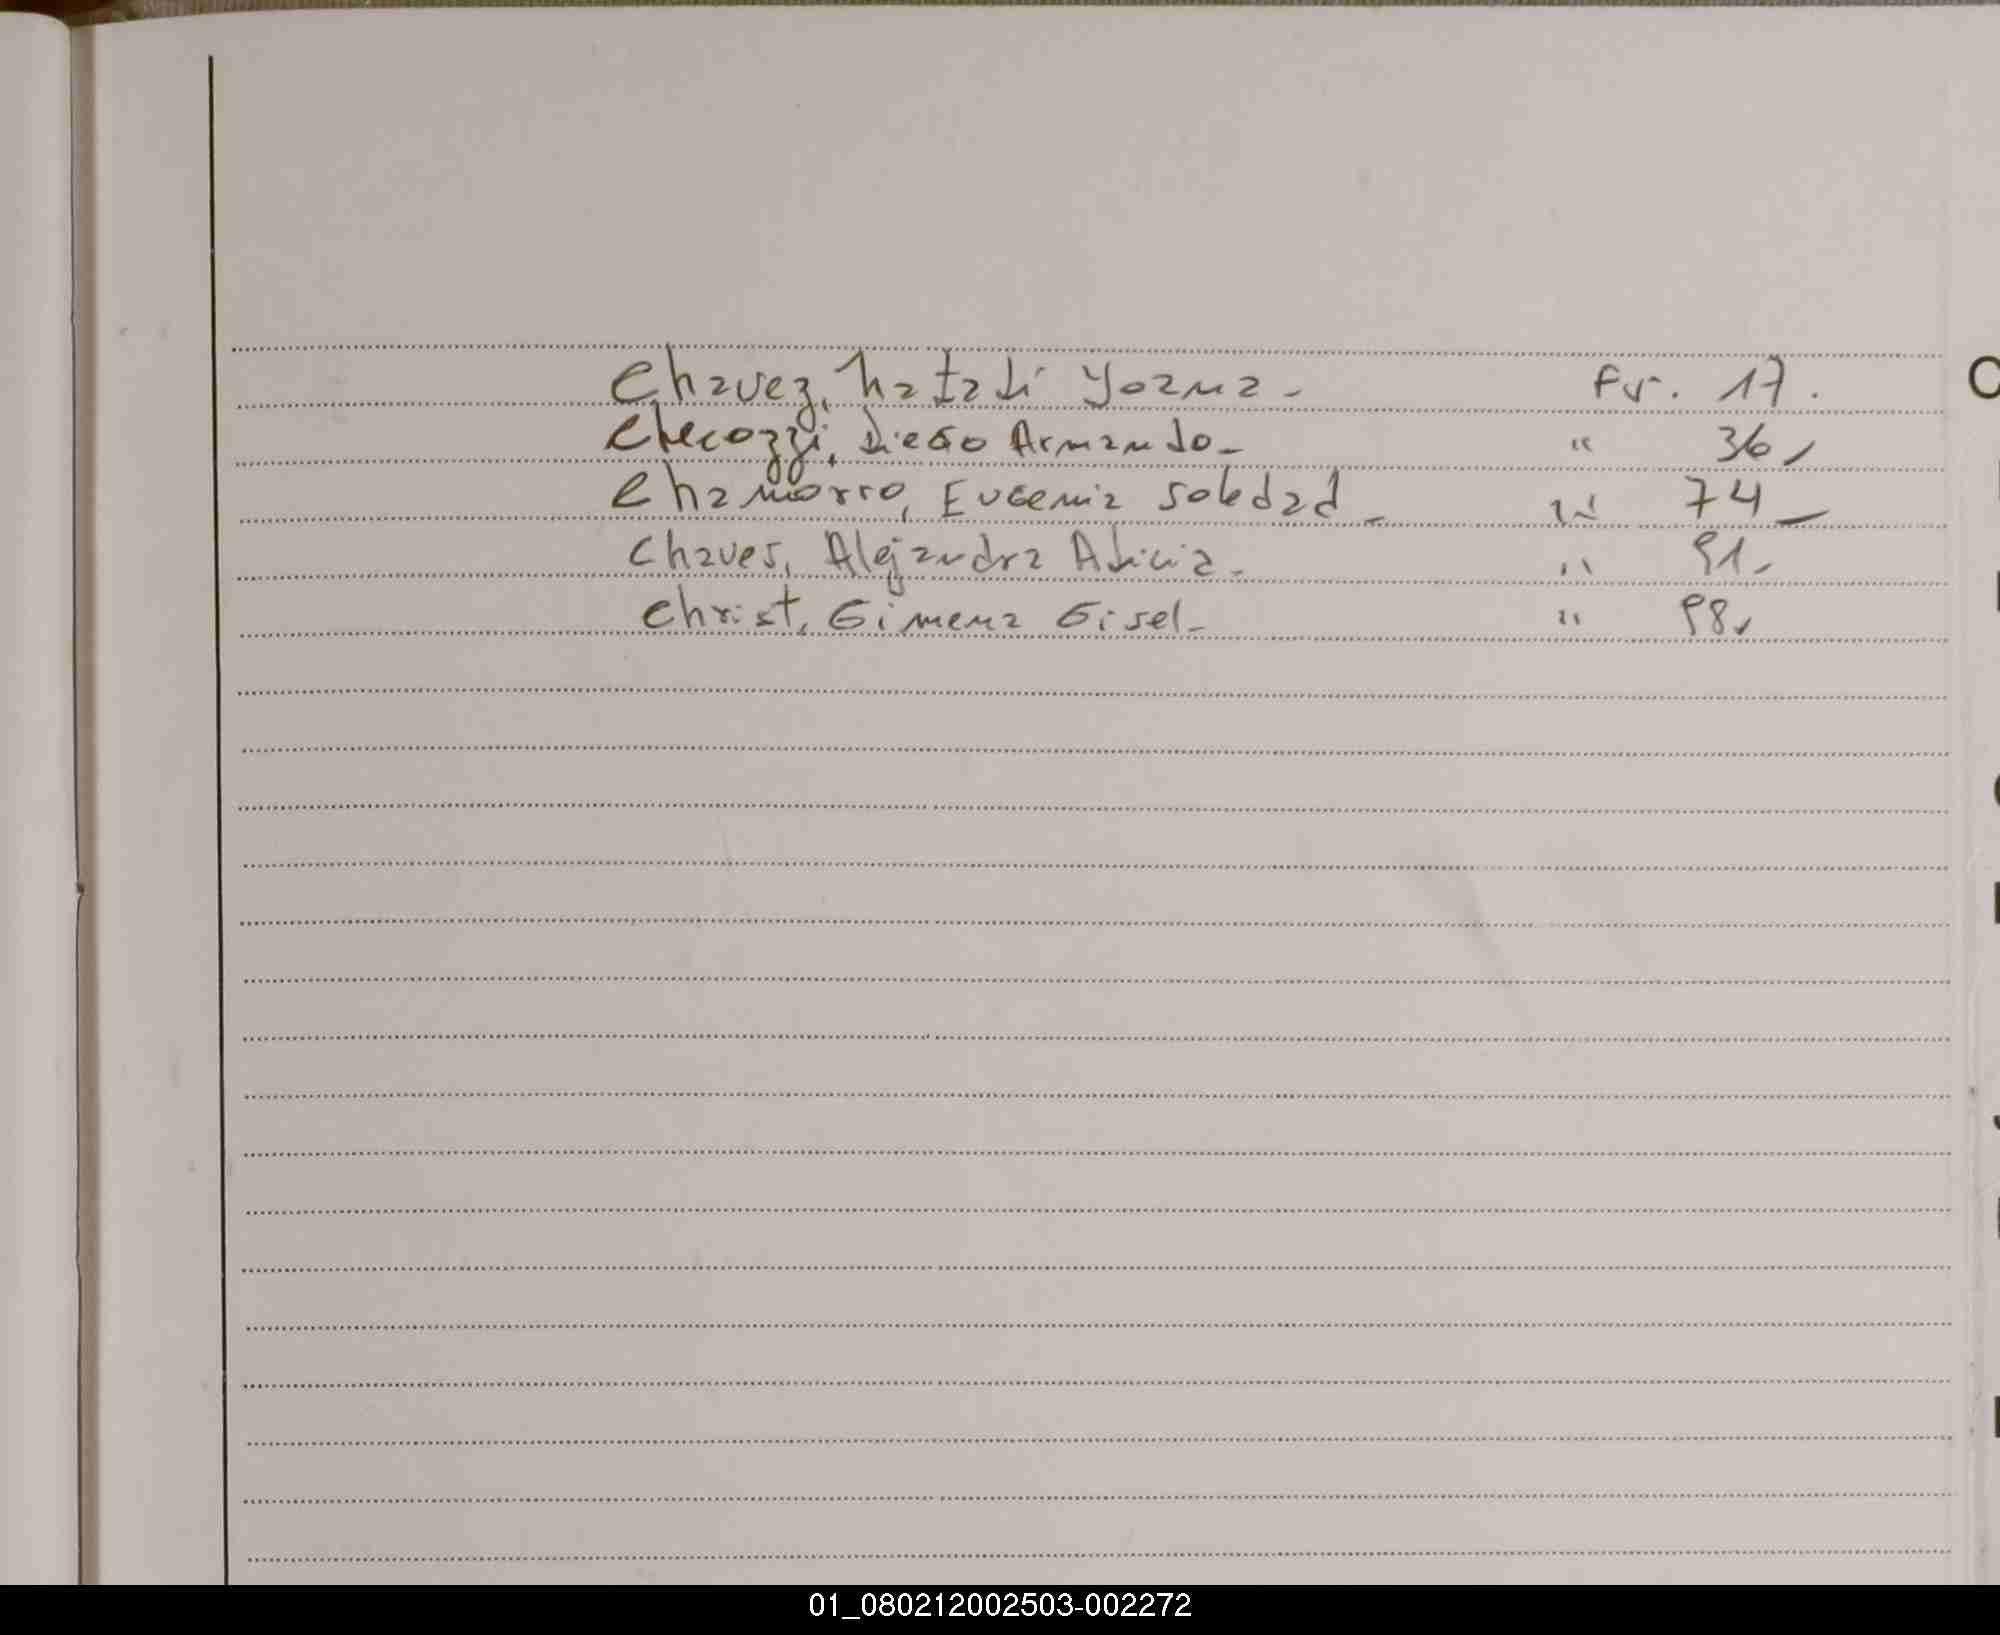 Chavez, Natali Yoana - Fv. 17.
Checozzi, Diego Armando - " 36,
Chamorro, Eugenia Soledad - " 74 -
Chaves, Alejandra Alicia - " 91 -
Christ, Gimena Gisel - " 98,
01_080212002503-002272